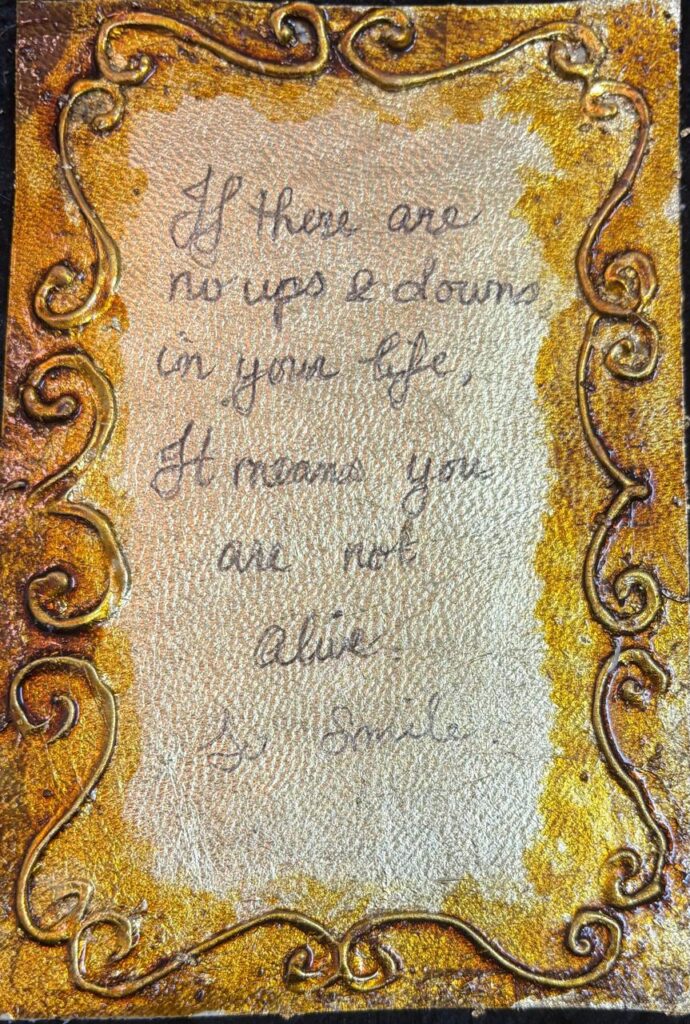 If there are
no ups & downs,
in your life,
It means you
are not
alive.
So Smile.